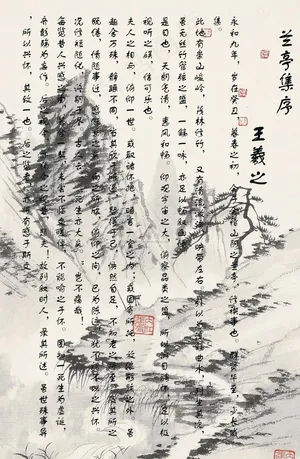 兰亭集序
王羲之
永和九年，岁在癸丑，暮春之初，会于会稽山阴之兰亭，修禊事也。群贤毕至，少长咸
集。
此地有崇山峻岭，茂林修竹，又有清流激湍，映带左右，引以为流觞曲水，列坐其次，
虽无丝竹管弦之盛，一觞一咏，亦足以畅叙幽情。
是日也，天朗气清，惠风和畅。仰观宇宙之大，俯察品类之盛，所以游目骋怀，足以极
视听之娱，信可乐也。
夫人之相与，俯仰一世。或取诸怀抱，晤言一室之内；或因寄所托，放浪形骸之外。虽
趣舍万殊，静躁不同，当其欣于所遇，暂得于己，快然自足，不知老之将至。及其所之
既倦，情随事迁，感慨系之矣。向之所欣，俯仰之间，已为陈迹，犹不能不以之兴怀。
况修短随化，终期于尽。古人云：死生亦大矣。岂不痛哉！
每览昔人兴感之由，若合一契，未尝不临文嗟悼，不能喻之于怀。固知一死生为虚诞，
齐彭殇为妄作。后之视今，亦犹今之视昔。悲夫！故列叙时人，录其所述，虽世殊事异
，所以兴怀，其致一也。后之览者，亦将有感于斯文。